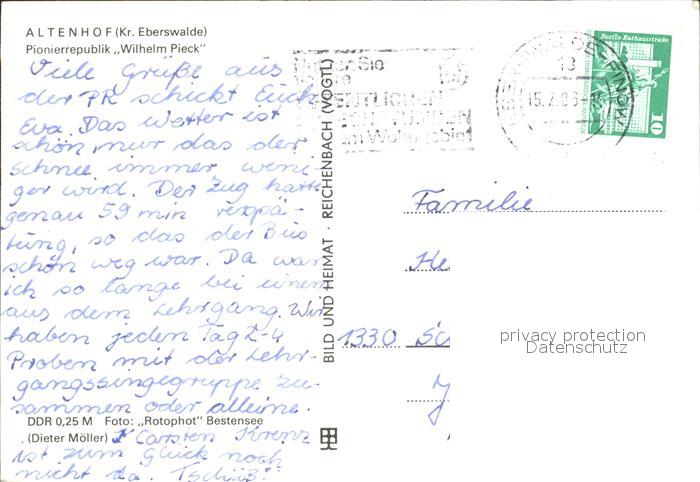 ALTENHOF (Kr. Eberswalde)
Pionierrepublik „Wilhelm Pieck"
Viele Grüße aus
der PR schickt Euch
Eva. Das Wetter ist
schön, nur das der
Schnee immer weni-
ger wird. Der Zug hatte
genau 59 min verspä-
tung, so das der Bus
schön weg war. Da war
ich so lange bei einem
aus dem Lehrgang. Wir
haben jeden Tag 2-4
Proben mit der Lehr-
gangssingegruppe zu-
sammen oder alleine.
DDR 0,25 M Foto: „Rotophot" Bestensee
(Dieter Möller) Carsten Krenz
ist zum Glück noch
nicht da. Tschüß!
BILD UND HEIMAT · REICHENBACH (VOGTL)
Sie
im Wohngebiet
EBERSWALDE-FINOW
13
15.2.86
Berlin-Rathausstraße
10
Familie
He
1330 Sc
privacy protection
Datenschutz